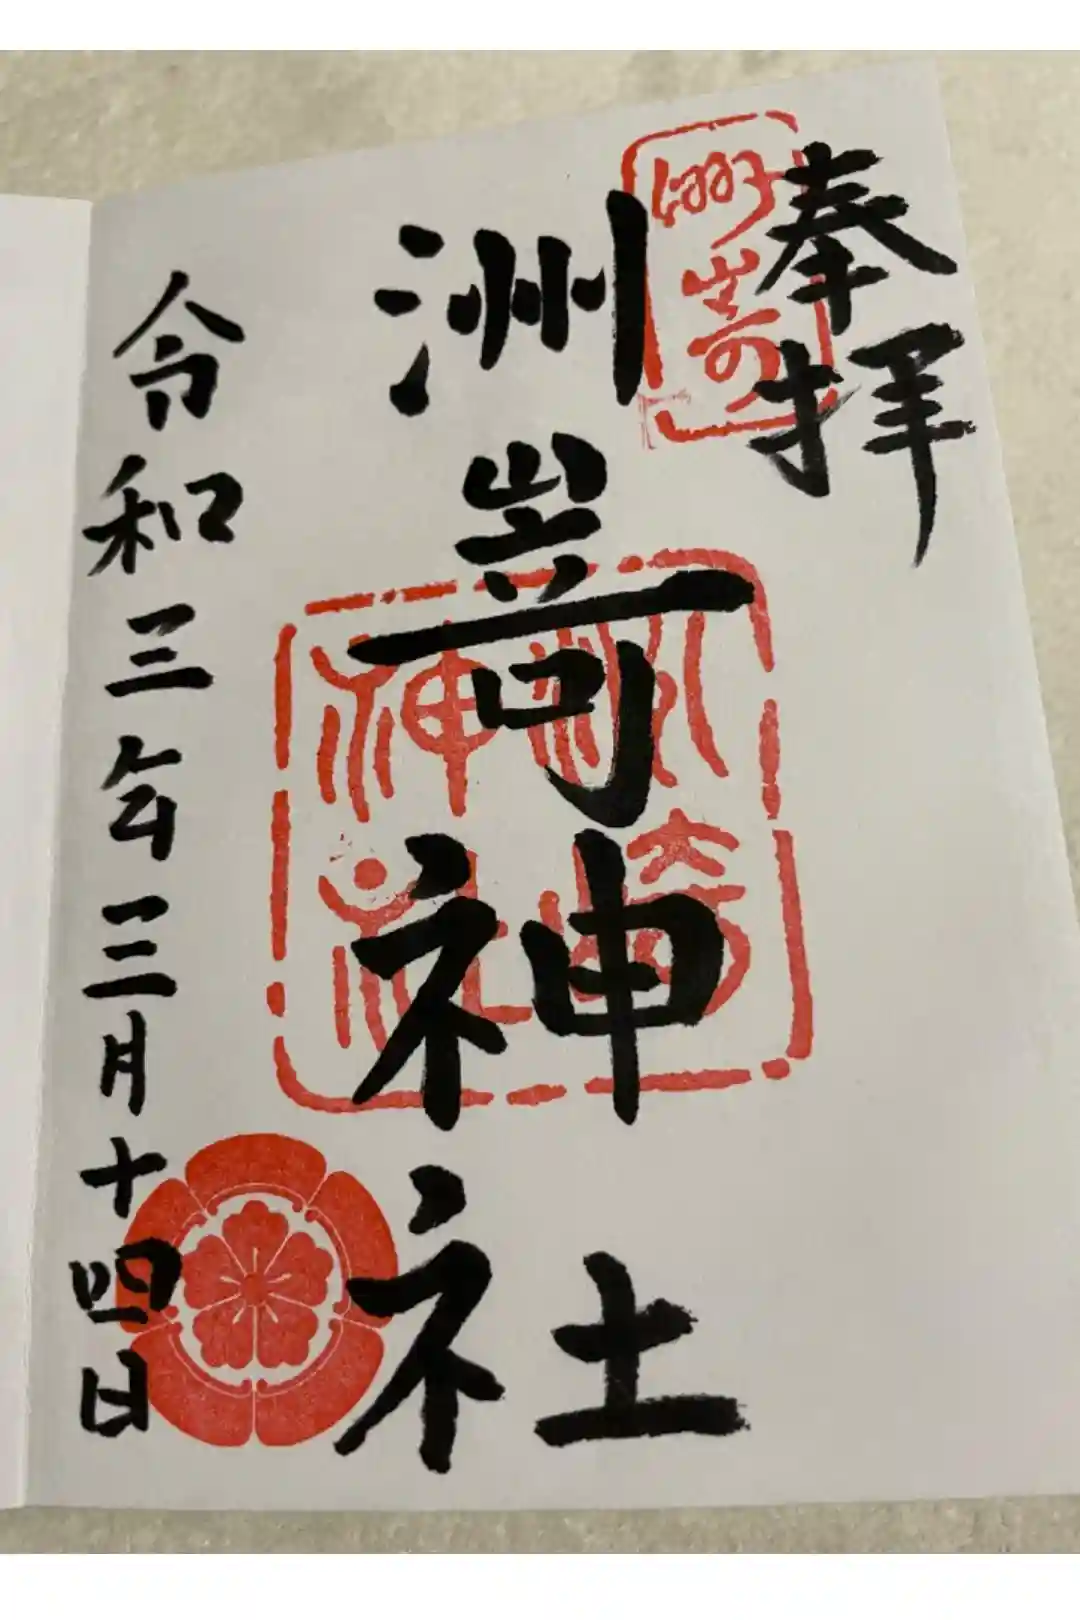 奉拝
洲嵜
洲嵜神社
洲崎
神社
令和三年三月十四日